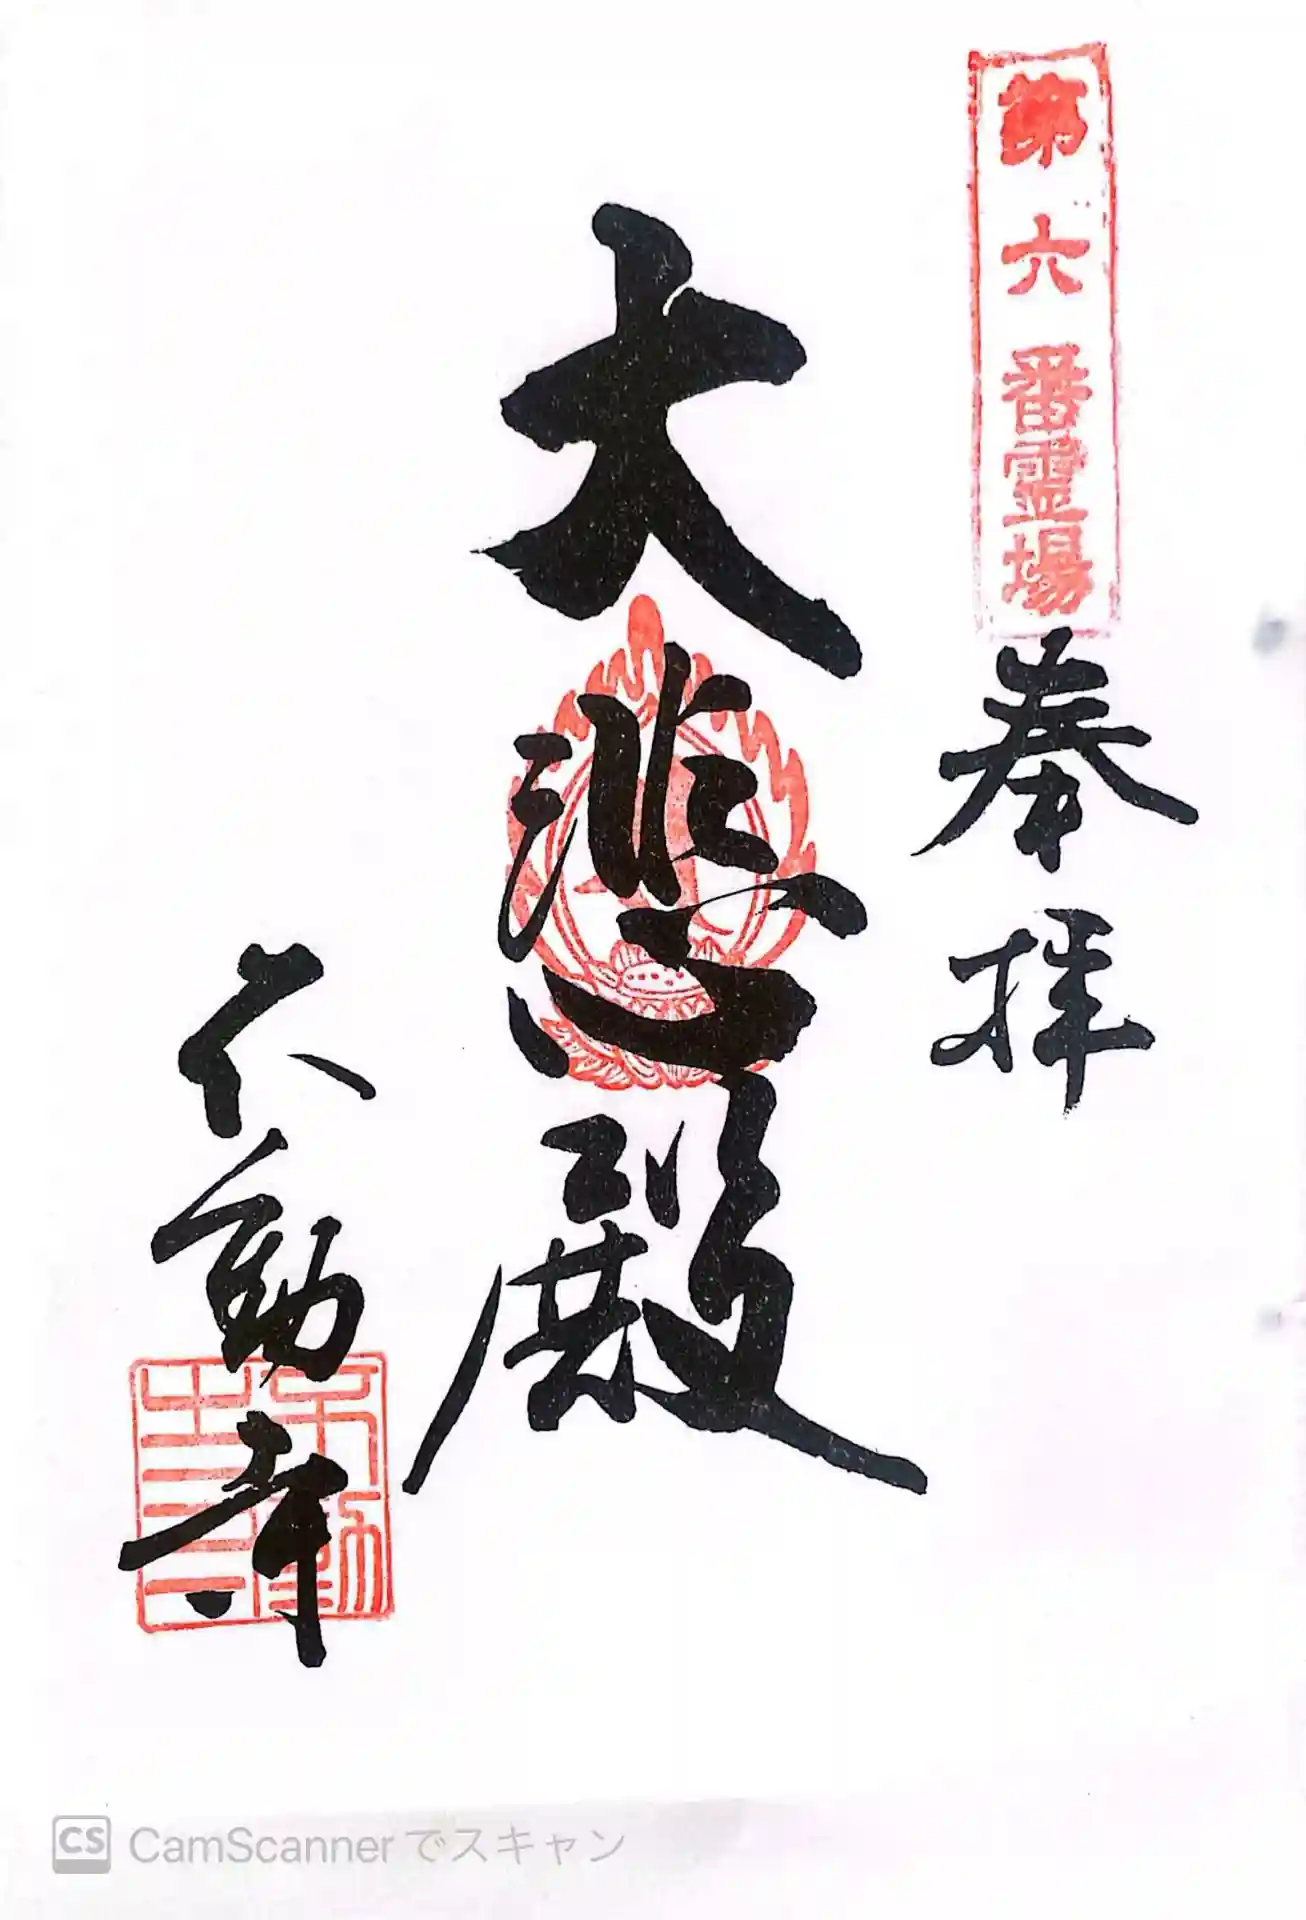 第六番霊場
奉拝
大悲殿
不動寺
CS CamScannerでスキャン